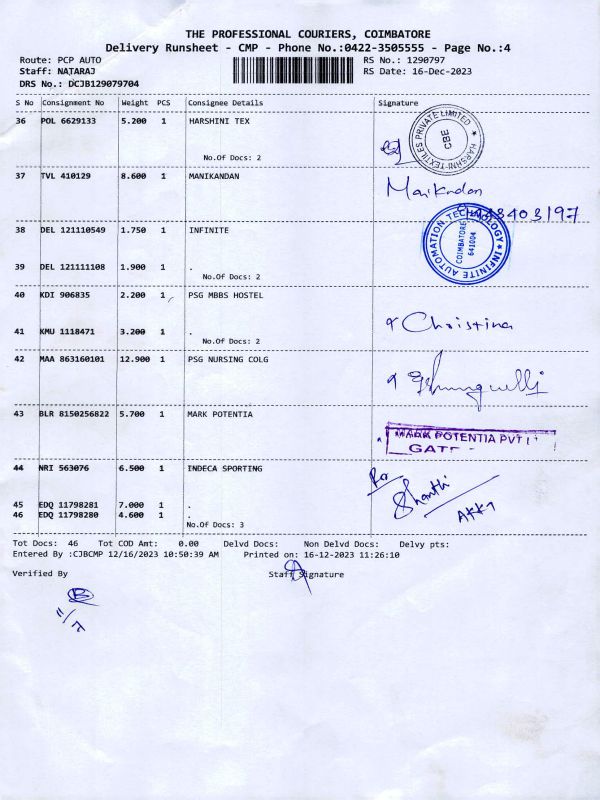 THE PROFESSIONAL COURIERS, COIMBATORE
Delivery Runsheet - CMP - Phone No.:0422-3505555 - Page No.:4
Route: PCP AUTO RS No.: 1290797
Staff: NATARAJ RS Date: 16-Dec-2023
DRS No.: DCJB129079704
S No Consignment No Weight PCS Consignee Details Signature
36 POL 6629133 5.200 1 HARSHINI TEX
HARSHNI TEXTILES PRIVATE LIMITED ★
CBE
No.Of Docs: 2
37 TVL 410129 8.600 1 MANIKANDAN
Manikandan
INFINITE AUTOMATION TECHNOLOGY ★
COIMBATORE
641004
38 DEL 121110549 1.750 1 INFINITE
39 DEL 121111108 1.900 1 .
No.Of Docs: 2
40 KDI 906835 2.200 1 PSG MBBS HOSTEL
Christina
41 KMU 1118471 3.200 1 .
No.Of Docs: 2
42 MAA 863160101 12.900 1 PSG NURSING COLG
43 BLR 8150256822 5.700 1 MARK POTENTIA
MARK POTENTIA PVT
44 NRI 563076 6.500 1 INDECA SPORTING
For
Shanthi
45 EDQ 11798281 7.000 1 .
46 EDQ 11798280 4.600 1 .
No.Of Docs: 3
Tot Docs: 46 Tot COD Amt: 0.00 Delvd Docs: Non Delvd Docs: Delvy pts:
Entered By :CJBCMP 12/16/2023 10:50:39 AM Printed on: 16-12-2023 11:26:10
Verified By Staff Signature